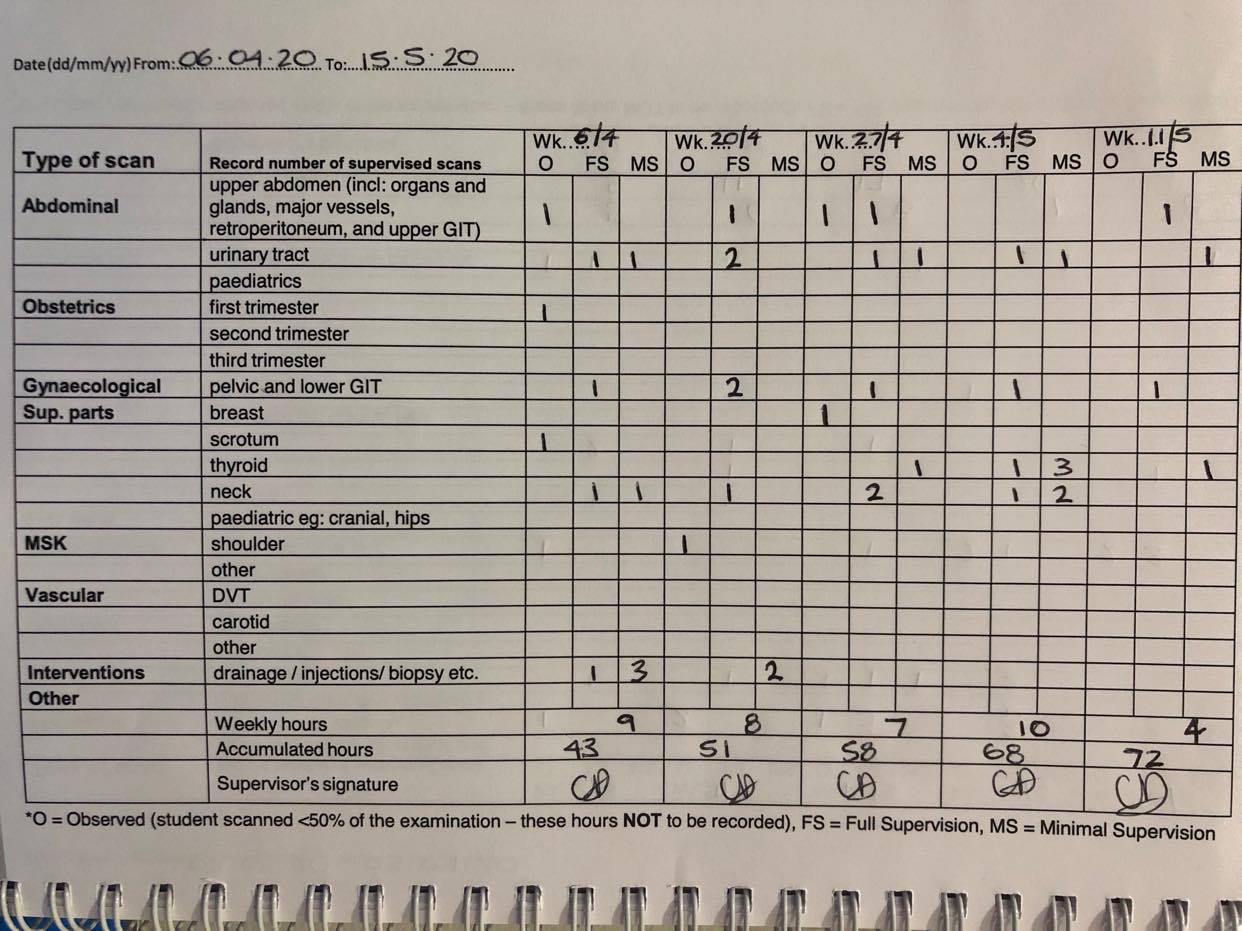 Date(dd/mm/yy) From: 06.04.20 To: 15.5.20
Wk. 6/4 Wk. 20/4 Wk. 27/4 Wk. 4/5 Wk. 11/5
Type of scan Record number of supervised scans O FS MS O FS MS O FS MS O FS MS O FS MS
upper abdomen (incl: organs and
Abdominal glands, major vessels, 1 1 1 1 1
retroperitoneum, and upper GIT)
urinary tract 1 1 2 1 1 1 1 1
paediatrics
Obstetrics first trimester 1
second trimester
third trimester
Gynaecological pelvic and lower GIT 1 2 1 1 1
Sup. parts breast 1
scrotum 1
thyroid 1 1 3 1
neck 1 1 1 2 1 2
paediatric eg: cranial, hips
MSK shoulder 1
other
Vascular DVT
carotid
other
Interventions drainage / injections/ biopsy etc. 1 3 2
Other
Weekly hours 9 8 7 10 4
Accumulated hours 43 51 58 68 72
Supervisor's signature
*O = Observed (student scanned <50% of the examination – these hours NOT to be recorded), FS = Full Supervision, MS = Minimal Supervision